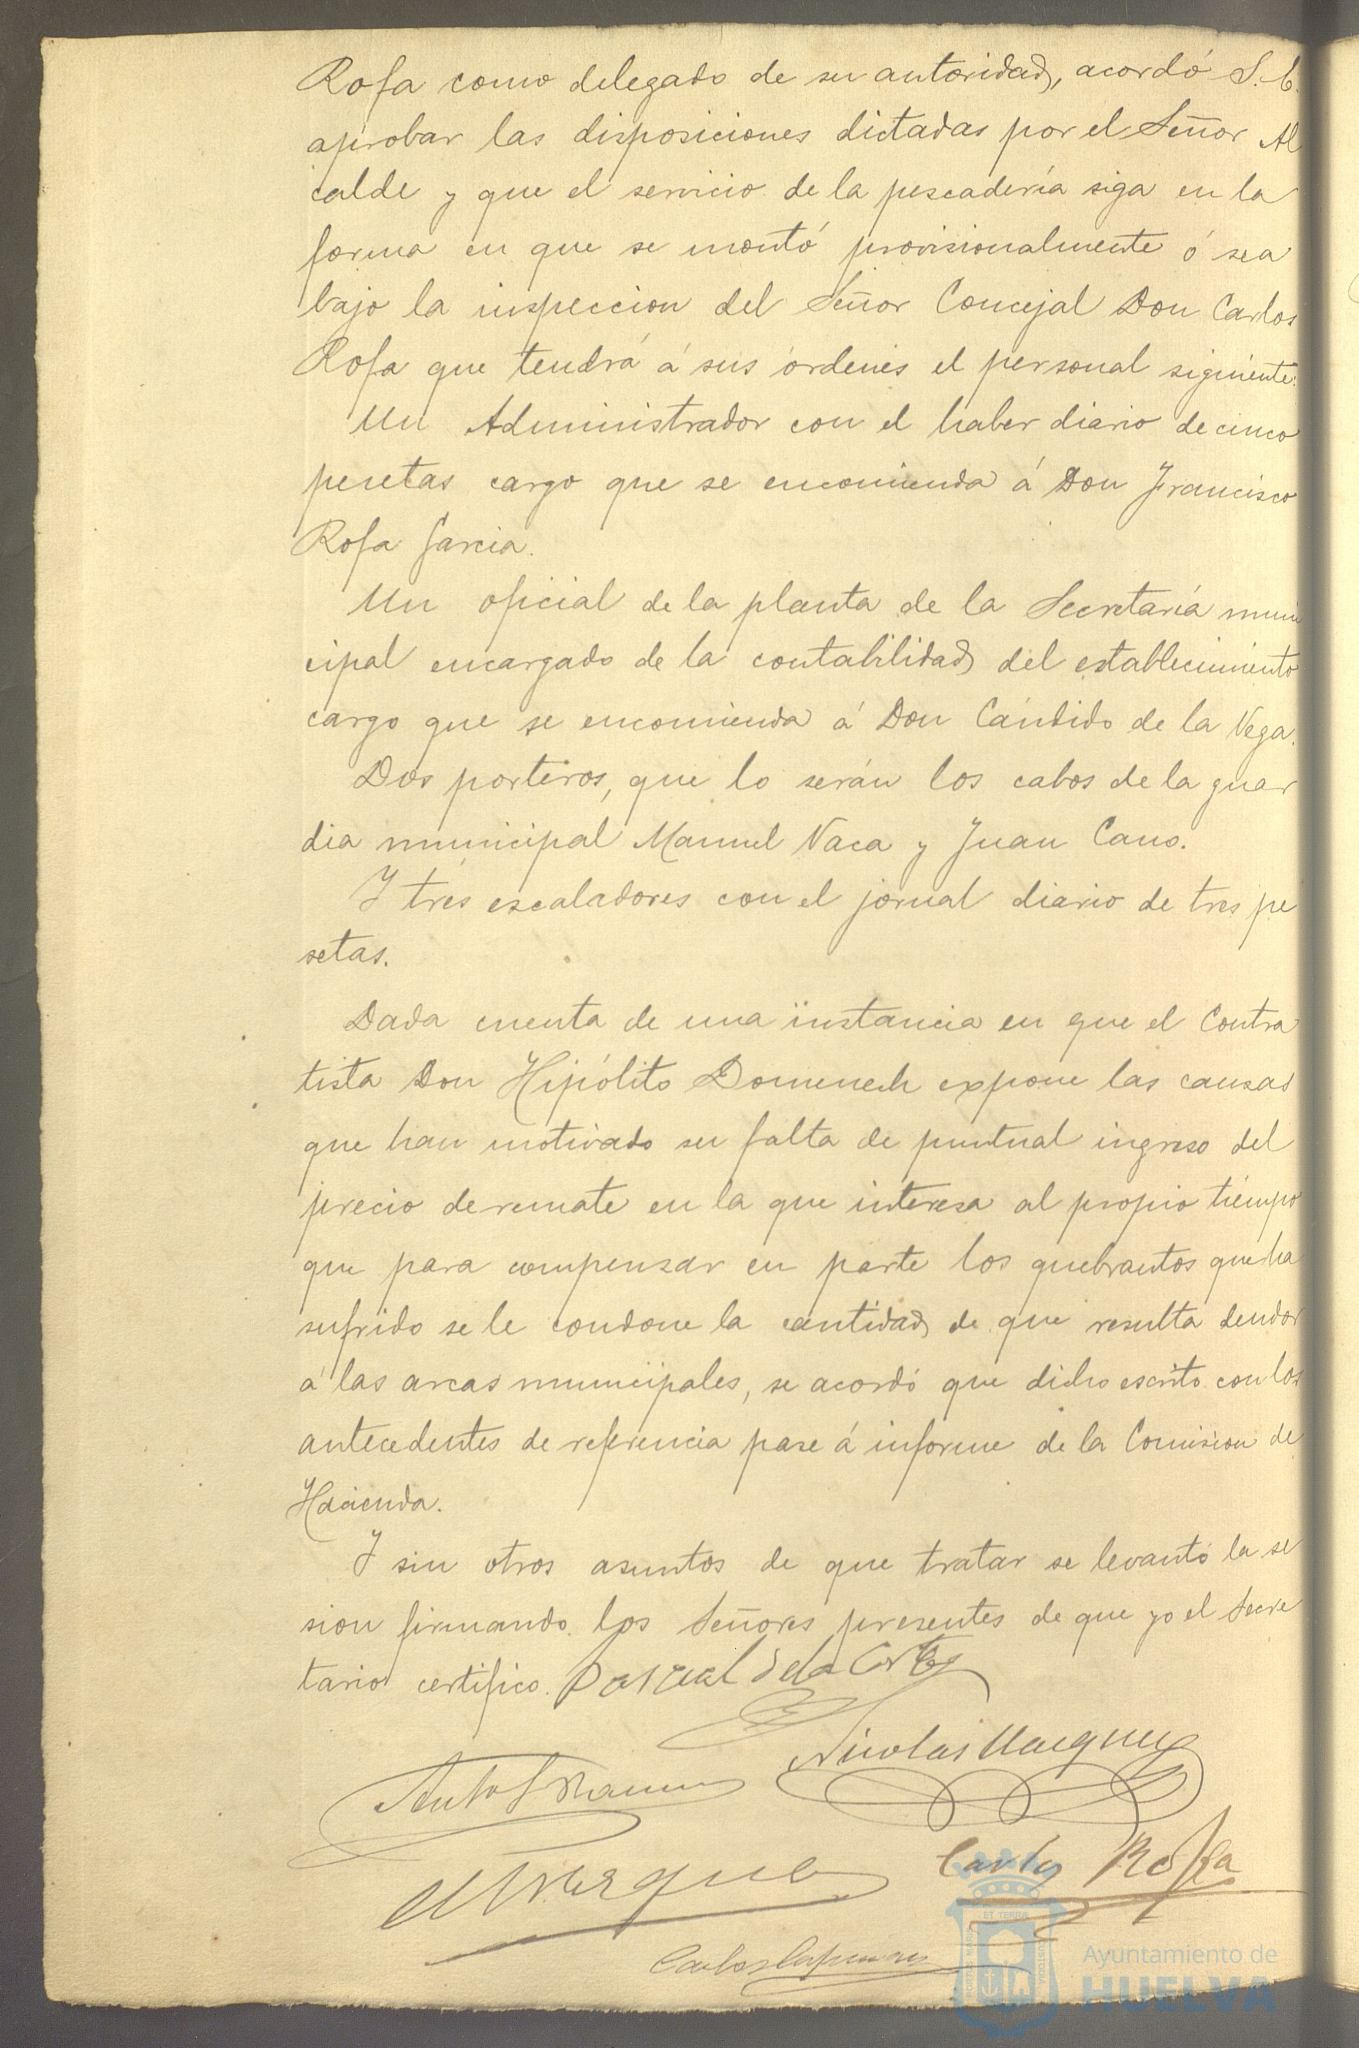 Rofa como delegado de su autoridad, acordó S. E.
aprobar las disposiciones dictadas por el Señor Al
calde y que el servicio de la pescadería siga en la
forma en que se montó provisionalmente ó sea
bajo la inspeccion del Señor Concejal Don Carlos
Rofa que tendrá á sus órdenes el personal siguiente:
Un Administrador con el haber diario de cinco
pesetas cargo que se encomienda á Don Francisco
Rofa Garcia.
Un oficial de la planta de la Secretaría muni
cipal encargado de la contabilidad del establecimiento
cargo que se encomienda á Don Cándido de la Vega.
Dos porteros, que lo serán los cabos de la guar
dia municipal Manuel Vaca y Juan Cano.
Y tres escaladores con el jornal diario de tres pe
setas.
Dada cuenta de una instancia en que el Contra
tista Don Hipólito Domenech expone las causas
que han motivado su falta de puntual ingreso del
precio de remate en la que interesa al propio tiempo
que para compensar en parte los quebrantos que ha
sufrido se le condone la cantidad de que resulta deudor
á las arcas municipales, se acordó que dicho escrito con los
antecedentes de referencia pase á informe de la Comision de
Hacienda.
Y sin otros asuntos de que tratar se levantó la se
sion firmando los Señores presentes de que yo el Secre
tario certifico. Pascual de la Corte
Nicolas Vazquez
Carlos Rofa
Carlos
ET TERRA
Ayuntamiento de
HUELVA